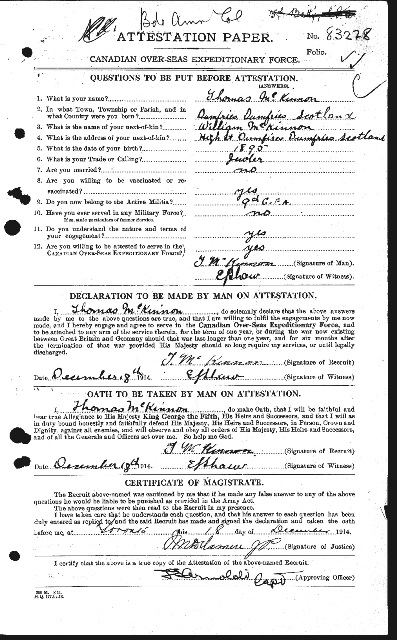 Bde Amn Col
ATTESTATION PAPER.
No. 83278
Folio.
CANADIAN OVER-SEAS EXPEDITIONARY FORCE.
QUESTIONS TO BE PUT BEFORE ATTESTATION.
(ANSWERS.)
1. What is your name? Thomas McKinnon
2. In what Town, Township or Parish, and in
what Country were you born? Dumfries Dumfries Scotland
3. What is the name of your next-of-kin? William McKinnon
4. What is the address of your next-of-kin? High St Dumfries Dumfries Scotland
5. What is the date of your birth? 1895
6. What is your Trade or Calling? Jewler
7. Are you married? no
8. Are you willing to be vaccinated or re-
vaccinated? yes
9. Do you now belong to the Active Militia? 9th C.F.A.
10. Have you ever served in any Military Force? no
If so, state particulars of former Service.
11. Do you understand the nature and terms of
your engagement? yes
12. Are you willing to be attested to serve in the
CANADIAN OVER-SEAS EXPEDITIONARY FORCE? yes
T McKinnon (Signature of Man).
E J Shaw (Signature of Witness).
DECLARATION TO BE MADE BY MAN ON ATTESTATION.
I, Thomas McKinnon, do solemnly declare that the above answers
made by me to the above questions are true, and that I am willing to fulfil the engagements by me now
made, and I hereby engage and agree to serve in the Canadian Over-Seas Expeditionary Force, and
to be attached to any arm of the service therein, for the term of one year, or during the war now existing
between Great Britain and Germany should that war last longer than one year, and for six months after
the termination of that war provided His Majesty should so long require my services, or until legally
discharged.
T McKinnon (Signature of Recruit)
Date December 18th 1914. E J Shaw (Signature of Witness)
OATH TO BE TAKEN BY MAN ON ATTESTATION.
I, Thomas McKinnon, do make Oath, that I will be faithful and
bear true Allegiance to His Majesty King George the Fifth, His Heirs and Successors, and that I will as
in duty bound honestly and faithfully defend His Majesty, His Heirs and Successors, in Person, Crown and
Dignity, against all enemies, and will observe and obey all orders of His Majesty, His Heirs and Successors,
and of all the Generals and Officers set over me. So help me God.
T McKinnon (Signature of Recruit)
Date December 18th 1914. E J Shaw (Signature of Witness)
CERTIFICATE OF MAGISTRATE.
The Recruit above-named was cautioned by me that if he made any false answer to any of the above
questions he would be liable to be punished as provided in the Army Act.
The above questions were then read to the Recruit in my presence.
I have taken care that he understands each question, and that his answer to each question has been
duly entered as replied to, and the said Recruit has made and signed the declaration and taken the oath
before me, at Toronto this 18 day of December 1914.
(Signature of Justice)
I certify that the above is a true copy of the Attestation of the above-named Recruit.
Capt (Approving Officer)